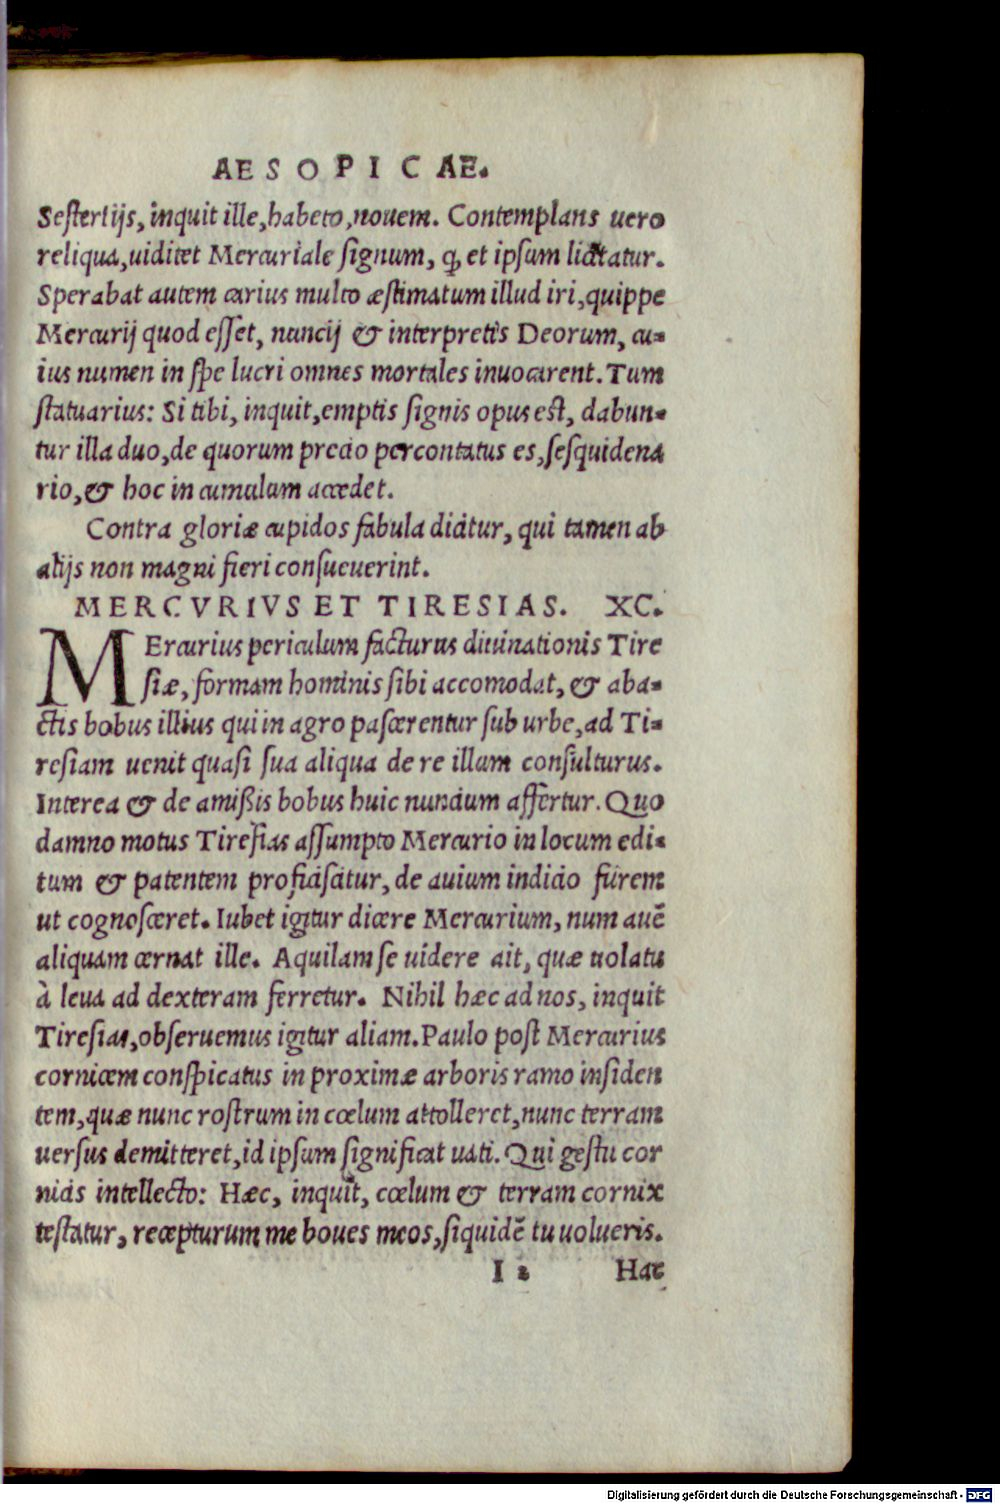 AESOPICAE.
Sestertijs, inquit ille, habeto, nouem. Contemplans uero
reliqua, uiditet Mercuriale signum, q̃, et ipsum licitatur.
Sperabat autem carius multo æstimatum illud iri, quippe
Mercurij quod esset, nuncij & interpretis Deorum, cu-
ius numen in spe lucri omnes mortales inuocarent. Tum
statuarius: Si tibi, inquit, emptis signis opus est, dabun-
tur illa duo, de quorum precio percontatus es, sesquidena
rio, & hoc in cumulum accedet.
Contra gloriæ cupidos fabula dicitur, qui tamen ab
alijs non magni fieri consueuerint.
MERCVRIVS ET TIRESIAS. XC.
MErcurius periculum facturus diuinationis Tire
siæ, formam hominis sibi accomodat, & aba-
ctis bobus illius qui in agro pascerentur sub urbe, ad Ti-
resiam uenit quasi sua aliqua de re illam consulturus.
Interea & de amißis bobus huic nuncium affertur. Quo
damno motus Tiresias assumpto Mercurio in locum edi-
tum & patentem proficiscitur, de auium indicio furem
ut cognosceret. Iubet igitur dicere Mercurium, num auẽ
aliquam cernat ille. Aquilam se uidere ait, quæ uolatu
à leua ad dexteram ferretur. Nihil hæc ad nos, inquit
Tiresias, obseruemus igitur aliam. Paulo post Mercurius
cornicem conspicatus in proximæ arboris ramo insiden
tem, quæ nunc rostrum in cœlum attolleret, nunc terram
uersus demitteret, id ipsum significat uati. Qui gestu cor
nicis intellecto: Hæc, inquit, cœlum & terram cornix
testatur, recepturum me boues meos, siquidẽ tu uolueris.
I 2 Hac
Digitalisierung gefördert durch die Deutsche Forschungsgemeinschaft - DFG